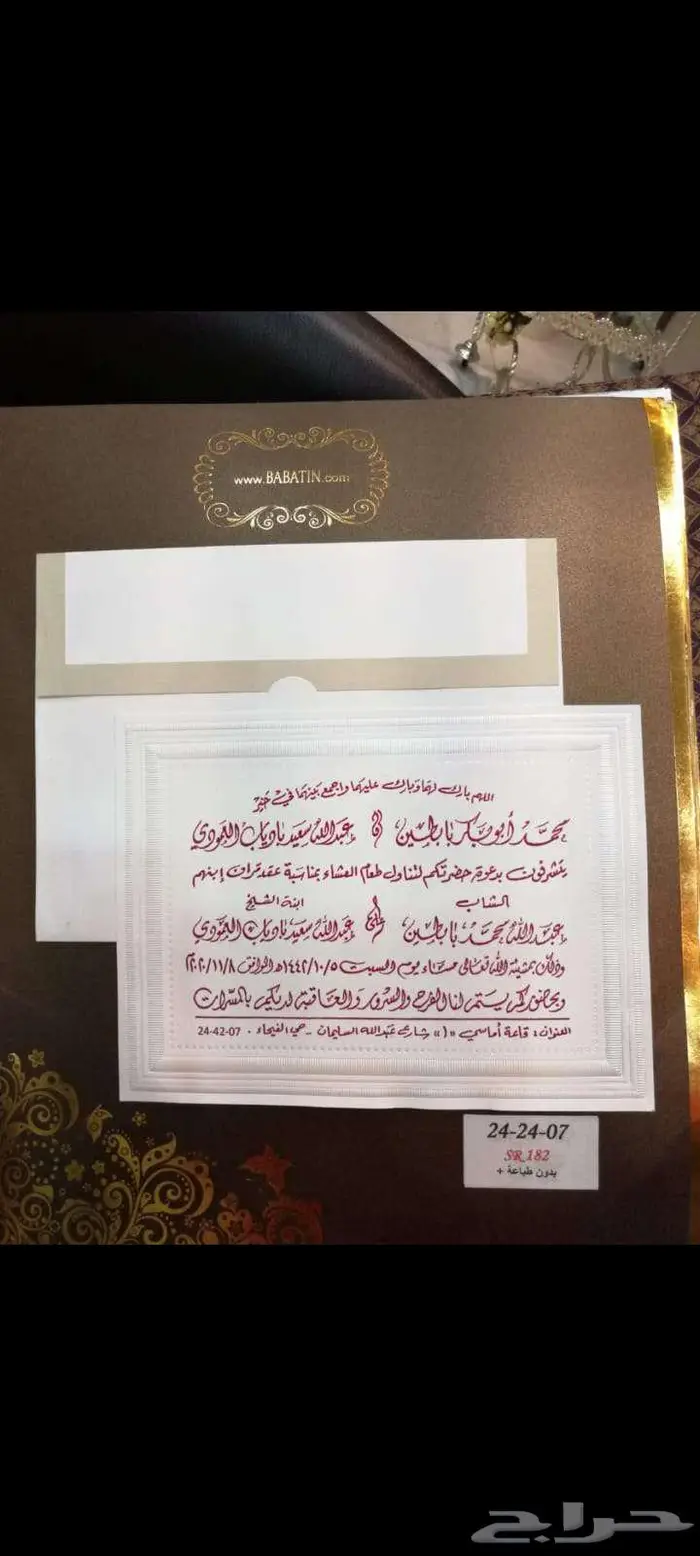 www.BABATIN.com
اللهم بارك لهما وبارك عليهما واجمع بينهما في خير
محمد أبوبكر بابطين و عبدالله سعيد باديان العمودي
يتشرفون بدعوة حضرتكم لتناول طعام العشاء بمناسبة عقد قران إبنهم
الشاب ابنة الشيخ
عبدالله محمد بابطين على عبدالله سعيد باديان العمودي
وذلك بمشيئة الله تعالى مساء يوم السبت ١٤٤٢/١٠/٥هـ الموافق ٢٠٢٠/١١/٨م
وبحضوركم يتم لنا الفرح والسرور والعاقبة لديكم بالمسرات
العنوان : قاعة أماسي «١» شارع عبدالله السليمان - حي الفيحاء . 24-42-07
24-24-07
SR 182
بدون طباعة +
حراج